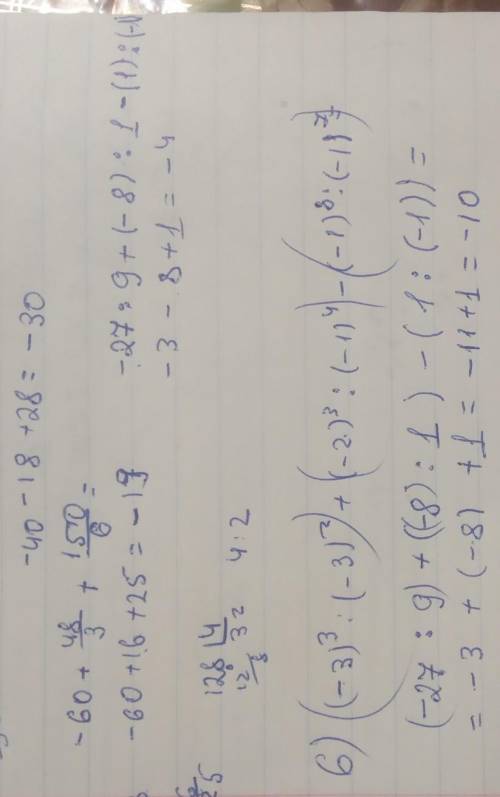 -40 - 18 + 28 = -30
-60 + 48/3 + 150/6 =
-60 + 16 + 25 = -19
-27 : 9 + (-8) : 1 - (1) : (-1
-3 - 8 + 1 = -4
25
128 | 4
12 32
8
4 : 2
6) ((-3)³ : (-3)²) + ((-2)³ : (-1)⁴) - ((-1)⁸ : (-1)⁷)
(-27 : 9) + ((-8) : 1) - (1 : (-1)) =
= -3 + (-8) + 1 = -11 + 1 = -10